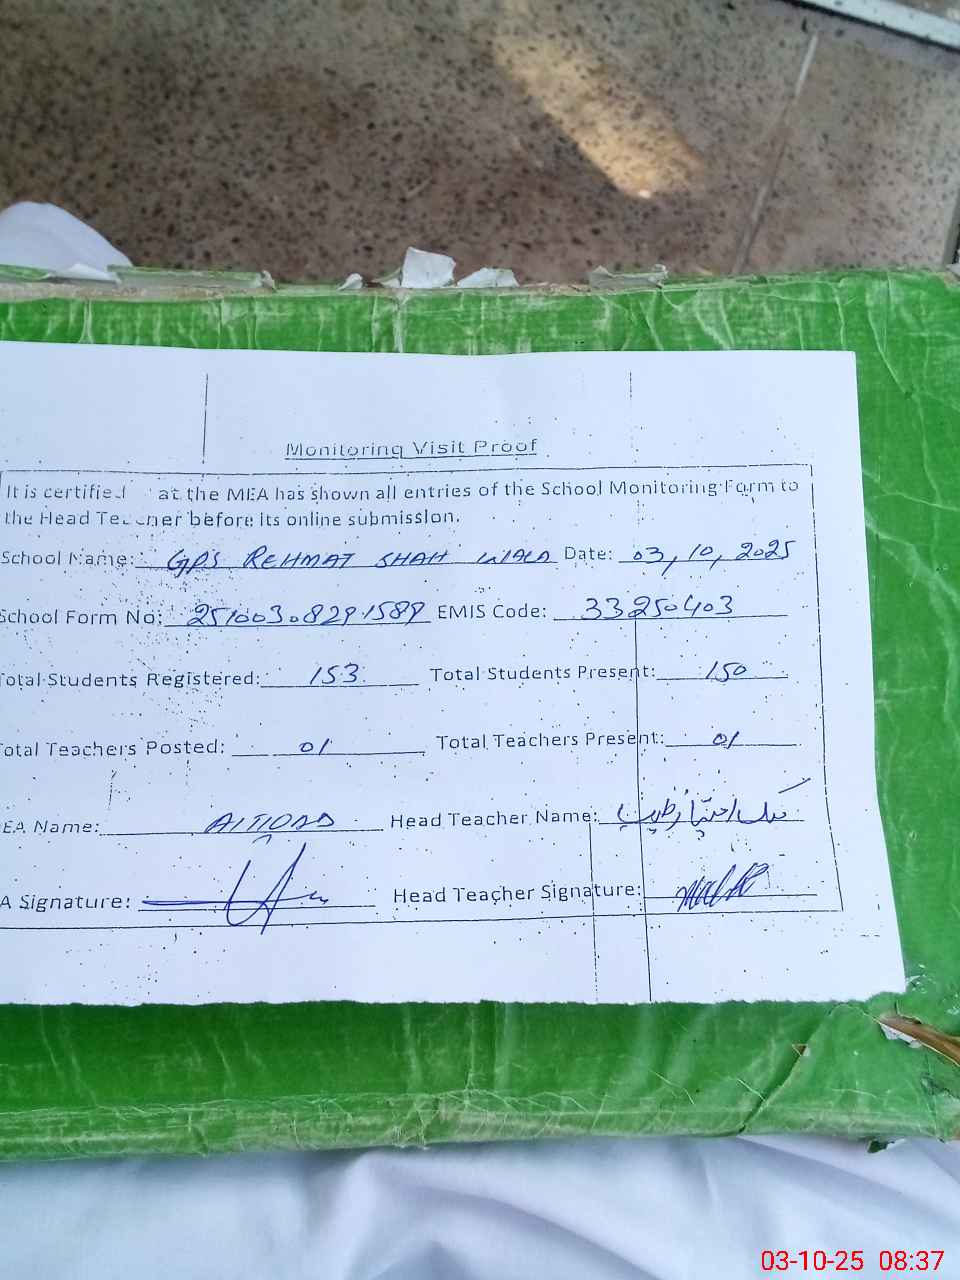 Monitoring Visit Proof
It is certified at the MEA has shown all entries of the School Monitoring Form to
the Head Teacher before its online submission.
School Name: GPS REHMAT SHAH WALA Date: 03, 10, 2025
School Form No: EMIS Code: 33250403
Total Students Registered: 153 Total Students Present: 150
Total Teachers Posted: 01 Total Teachers Present: 01
EA Name: Head Teacher Name:
A Signature: Head Teacher Signature:
03-10-25 08:37